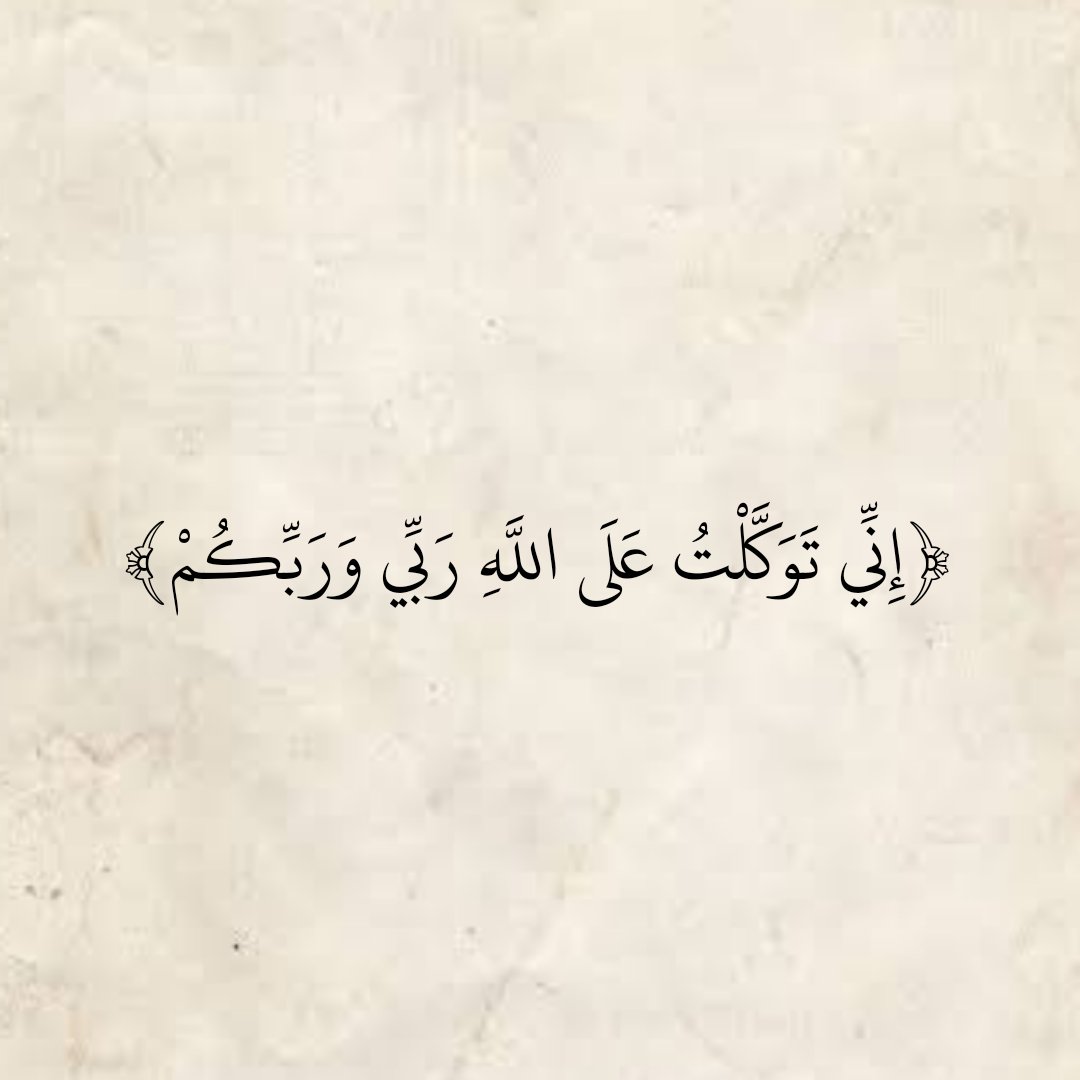 ﴿إِنِّي تَوَكَّلْتُ عَلَى اللَّهِ رَبِّي وَرَبِّكُمْ﴾